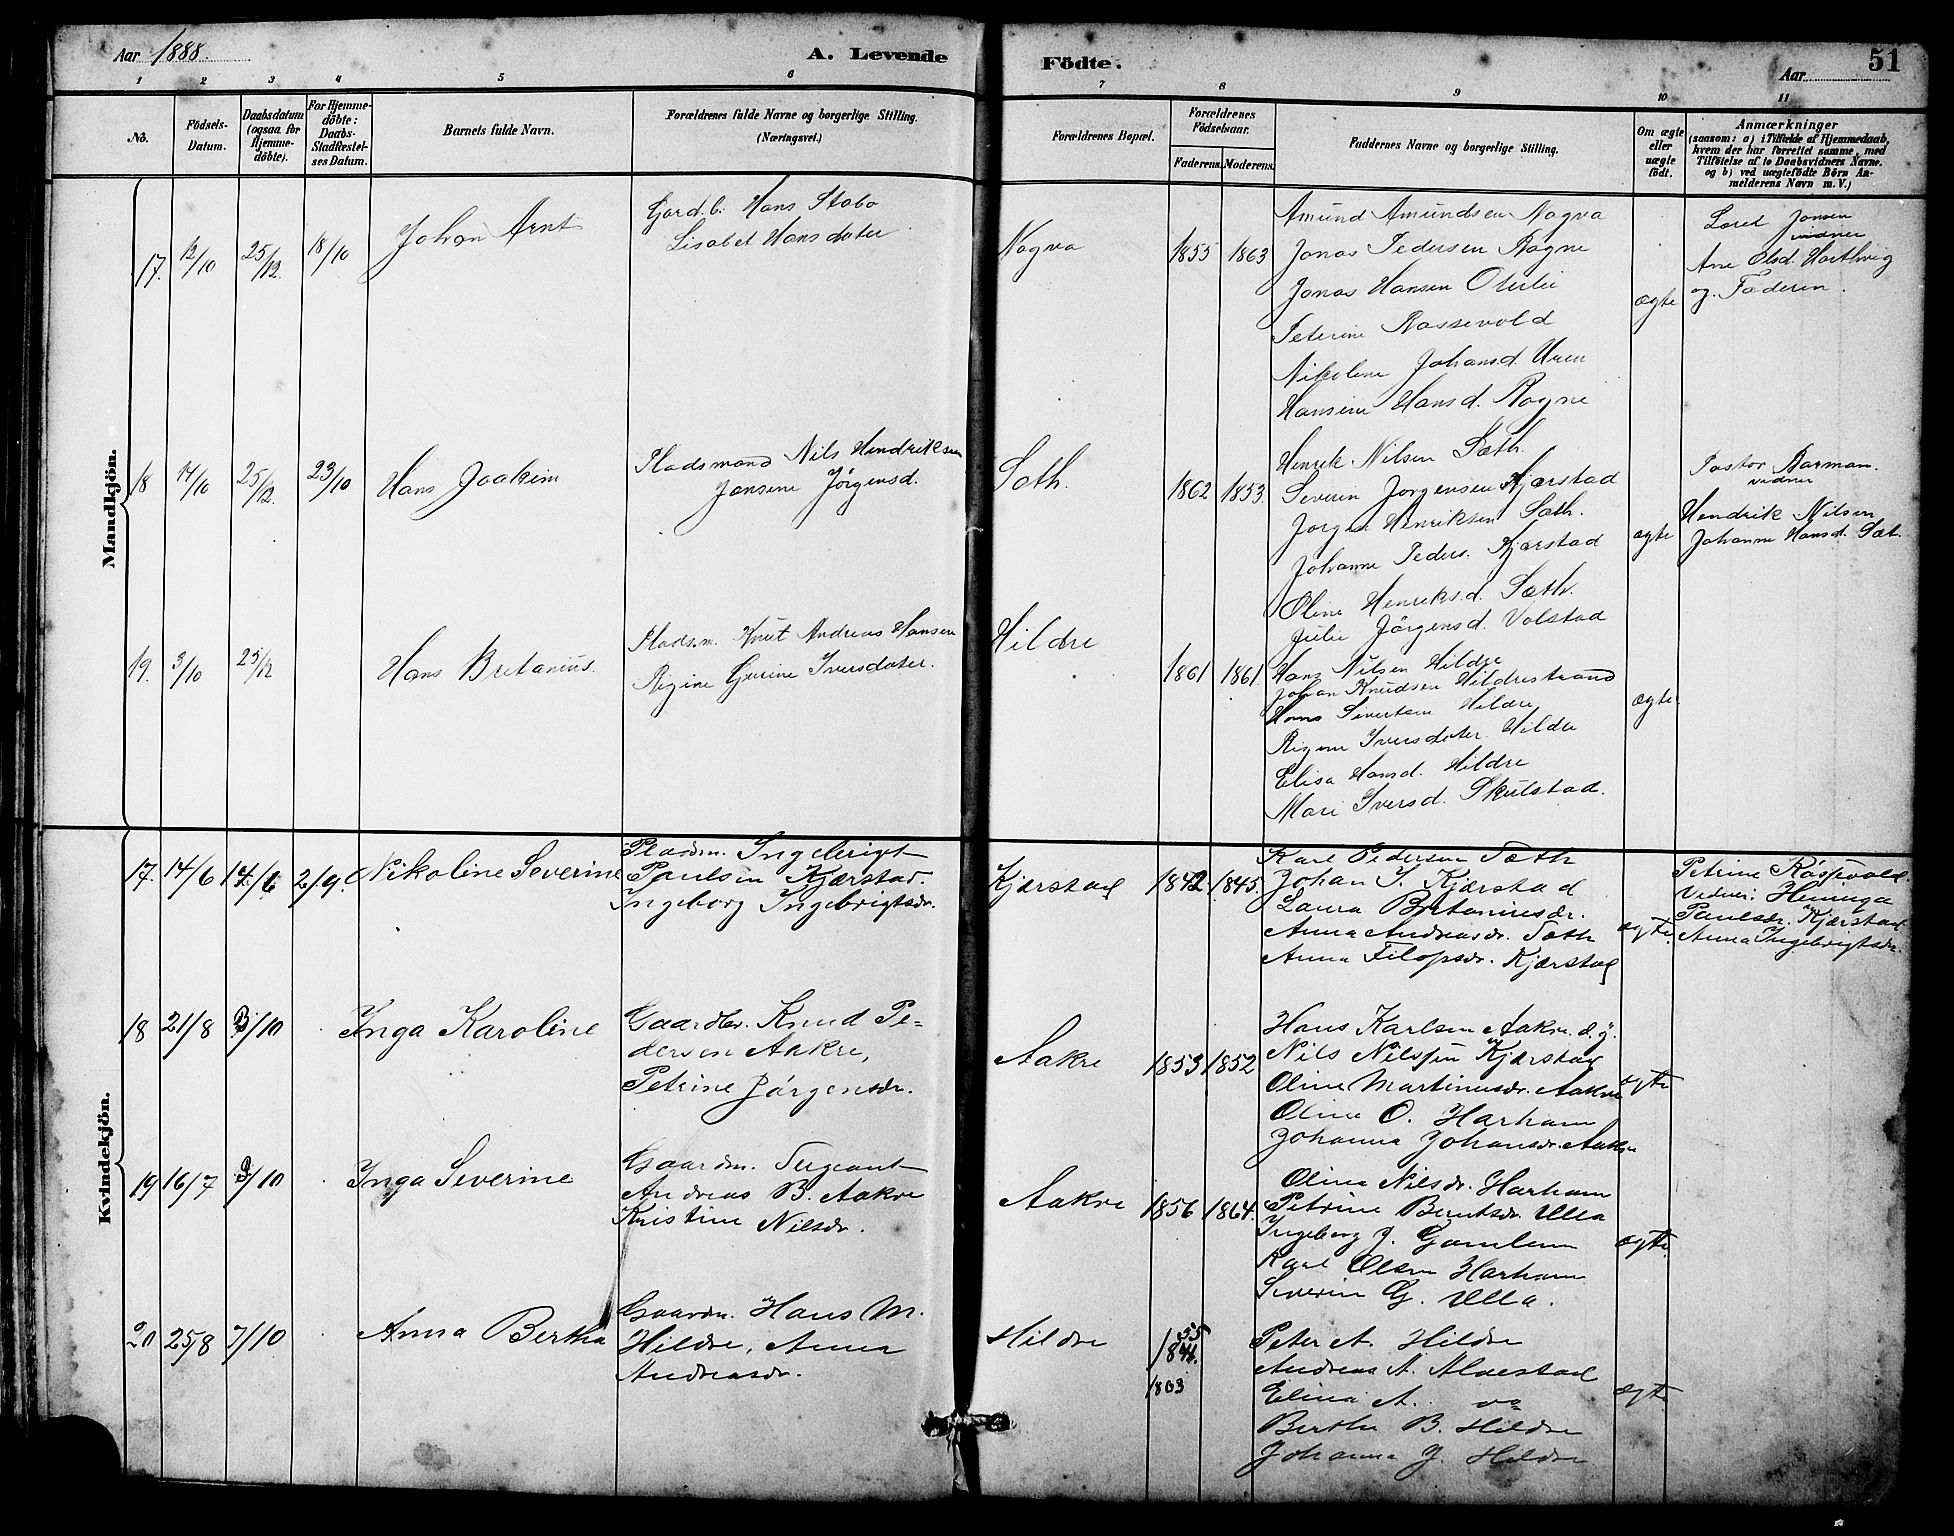 Aar 1888.
A. Levende
Födte.
Aar
51
1 2 3 4 5 6 7 8 9 10 11
No.
Födsels-
Datum.
Daabsdatum
(ogsaa for
Hjemme-
döbte).
For Hjemme-
döbte:
Daabs-
Stadfæstel-
ses Datum.
Barnets fulde Navn.
Forældrenes fulde Navne og borgerlige Stilling.
(Næringsvei.)
Forældrenes Bopæl.
Forældrenes
Födselsaar.
Faderens.
Moderens.
Faddernes Navne og borgerlige Stilling.
Om ægte
eller
uægte
födt.
Anmærkninger
(saasom: a) i Tilfælde af Hjemmedaab,
hvem der har forrettet samme, med
Tilföielse af to Daabsvidners Navne,
og b) ved uægtefödte Börn An-
melderens Navn m. V.)
Mandkjön.
17. 12/10 25/12. 18/10
Johan Arnt
Gard.b. Hans Stabo
Lisabet Hansdater
Nogva
1855 1863
Amund Amundsen Nogva
Jonas Pedersen Rogne
Jonas Hansen Oterlei
Peterine Rossevold
Nikoline Johansd. Uren
Hansine Hansd. Rogne
ægte
Jonsen
vidner
Ane Olsd. Harthvig
og Faderen.
18 14/10 25/12. 23/10
Hans Joakim
Pladsmand Nils Hendriksen
Jonsine Jörgensd.
Sæth.
1862 1853.
Henrik Nilsen Sæth.
Severin Jorgensen Kjærstad
Jorgen Henriksen Sæth.
Johanne Peders. Kjærstad
Oline Henriksd. Sæth.
Julie Jörgensd. Volstad
ægte
Pastor Barman.
vidner
Hendrik Nilsen
Johanne Hansd. Sæt.
19. 3/10 25/12
Hans Britanius.
Pladsm. Knut Andreas Hansen
Regine Gurine Iversdater.
Hildre
1861 1861
Hans Nilsen Hildre
Johan Knudsen Hildrestrand
Hans Severtsen Hildre
Regine Iversdater Hildre
Elisa Hansd. Hildre
Mari Iversd. Skulstad.
ægte
Kvindekjön.
17. 14/6 14/6 2/9.
Nikoline Severine
Pladsm. Ingebrigt
Paulsen Kjærstad.
Ingeborg Ingebrigtsdr.
Kjærstad
1842. 1845.
Karl Pedersen Sæth
Johan I. Kjærstad
Laura Britaniusdr.
Anna Andreasdr. Sæth
Anna Filopsdr. Kjærstad
ægte.
Petrine Röspvold.
Vidner: Heninga
Paulsdr. Kjærstad
Anna Ingebrigtsdr.
18 21/8 /10
Inga Karoline
Gaardbr. Knud Pe-
dersen Aakre,
Petrine Jörgensdr.
Aakre
1853 1852
Hans Karlsen Aakre d.y.
Nils Nilssen Kjærstad
Oline Martinusdr. Aakre
Oline O. Harham
Johanna Johansdr. Aakre
ægte
19 16/7 /10
Inga Severine
Gaardm. Sergeant
Andreas B. Aakre
Kristine Nilsdr.
Aakre
1856 1864.
Oline Nilsdr. Harham
Petrine Berntsdr. Ulla
Ingeborg J. Gamlem
Karl Olsen Harham
Severin G. Ulla.
ægte.
20 25/8 7/10
Anna Bertha
Gaardm. Hans M.
Hildre, Anna
Andreasdr.
Hildre
55
1841.
1863
Peter A. Hildre
Andreas A. Alvestad
Elina A. og
Berthe B. Hildre
Johanna J. Hildre
ægte